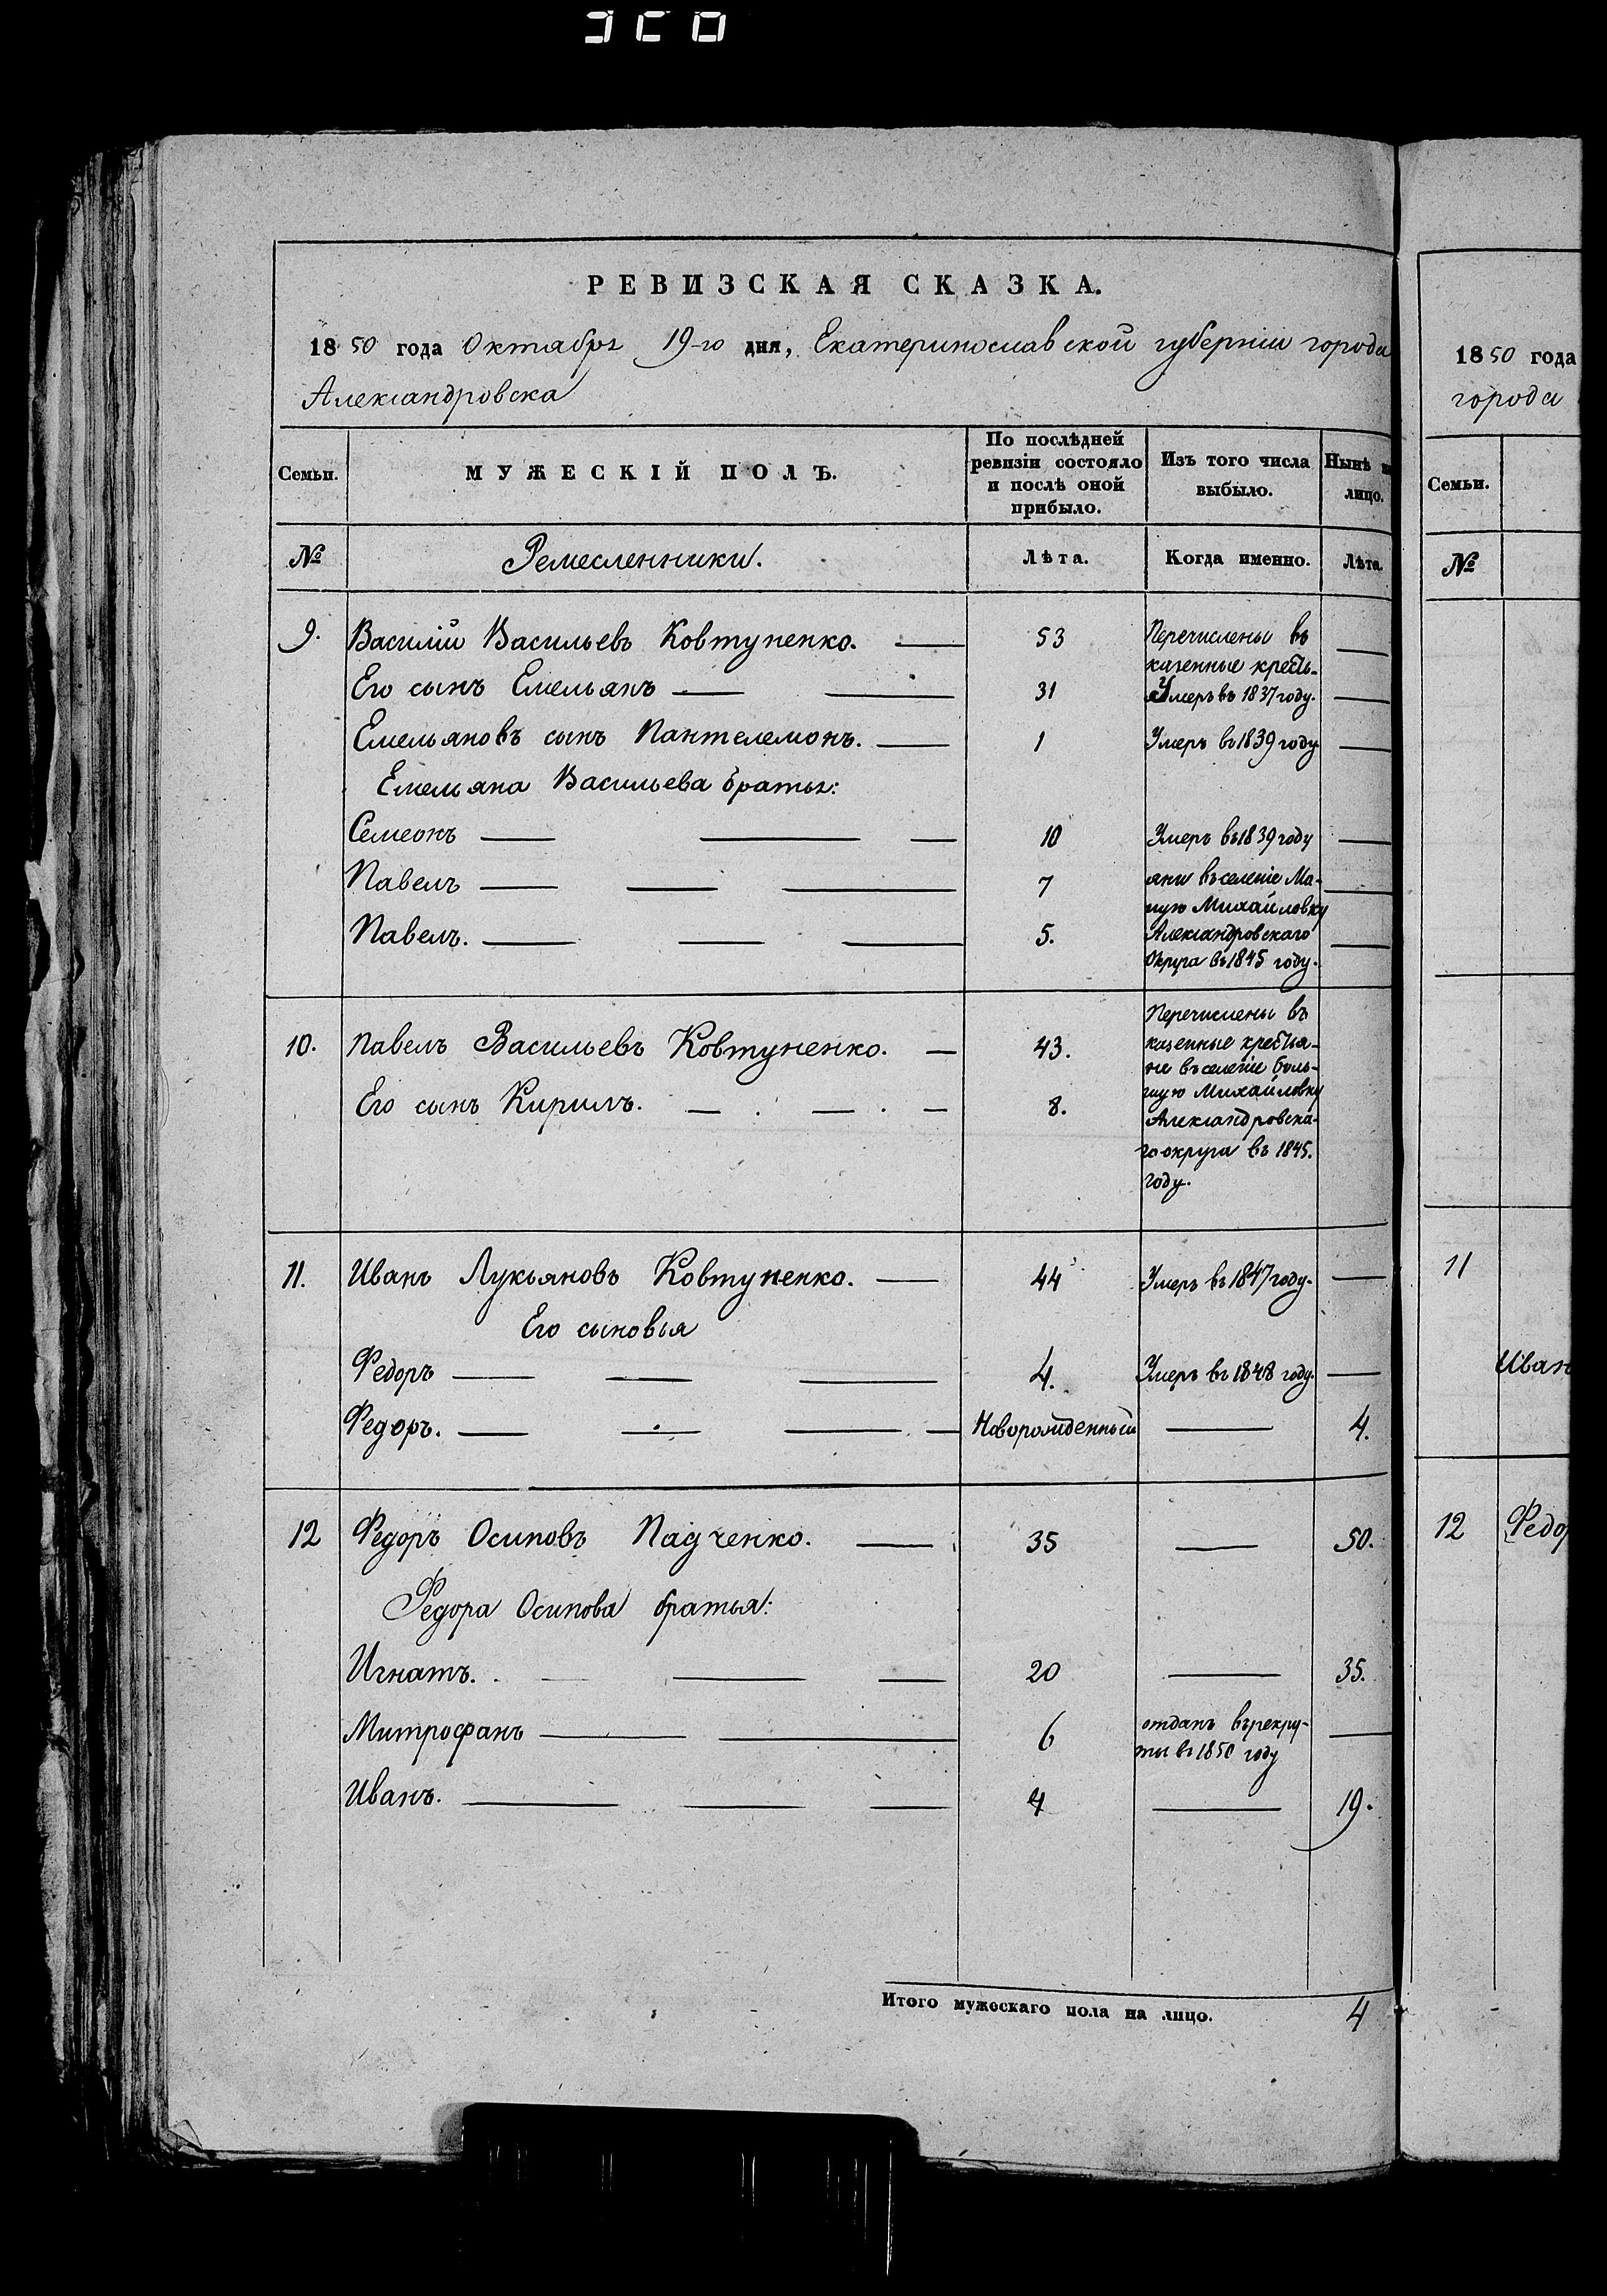 РЕВИЗСКАЯ СКАЗКА.
1850 года Октября 19-го дня, Екатеринославской губерніи города
Александровска
Семьи.
МУЖЕСКІЙ ПОЛЪ.
По послѣдней ревизіи состояло и послѣ оной прибыло.
Изъ того числа выбыло.
Нынѣ на лицо.
№ Ремесленники. Лѣта. Когда именно. Лѣта.
9. Василій Васильевъ Ковтуненко. — 53 Перечислены въ —
казенные кресть-
Его сынъ Емельянъ — — 31 Умеръ въ 1837 году. —
Емельяновъ сынъ Пантелемонъ. — 1 Умеръ въ 1839 году —
Емельяна Васильева братья:
Семеонъ — — — 10 Умеръ въ 1839 году —
Павелъ — — — 7 яни въ селеніе Ма- —
лую Михайловку
Павелъ. — — — 5. Александровскаго —
Округа въ 1845 году.
Перечислены въ
10. Павелъ Васильевъ Ковтуненко. — 43. казенные крестья-
не въ селеніе Боль-
Его сынъ Кирилъ. — . — . — 8. шую Михайловку
Александровска-
го округа въ 1845.
году.
11. Иванъ Лукьяновъ Ковтуненко. — 44 Умеръ въ 1847 году. —
Его сыновья
Федоръ — — — 4. Умеръ въ 1848 году. —
Федоръ. — — — — Новорожденный — 4.
12 Федоръ Осиповъ Падченко. — 35 — 50.
Федора Осипова братья:
Игнатъ. — — — 20 — 35.
Митрофанъ — — 6 отданъ въ рекру- —
ты въ 1850 году
Иванъ. — — — 4 — 19.
Итого мужескаго пола на лицо. 4
1850 года
города
Семьи.
№
11
Иван
12 Федор